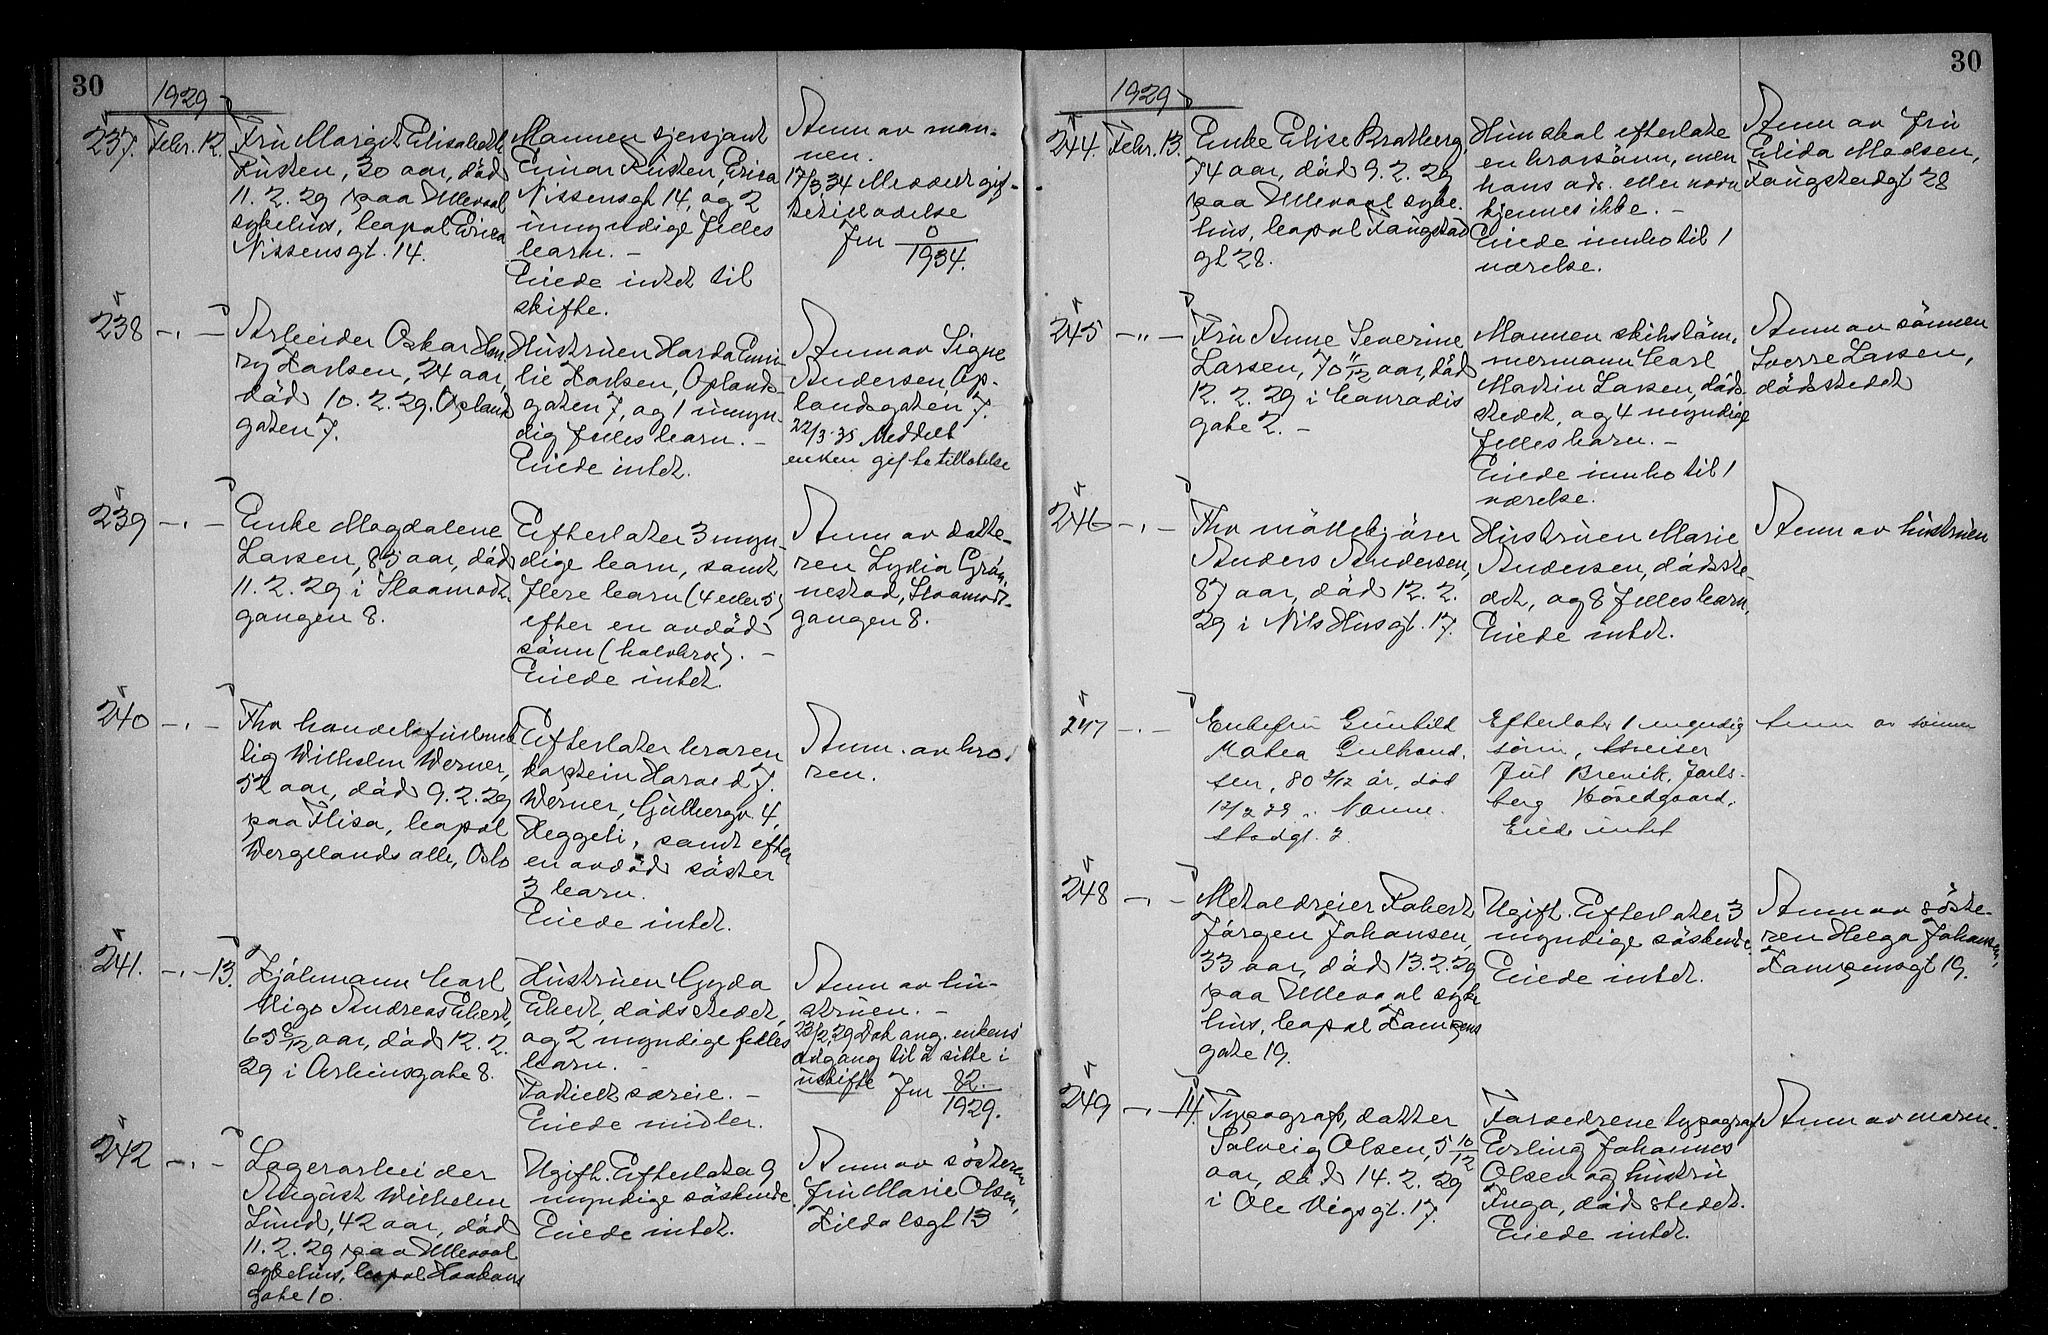 30
1929
237. Febr. 12. Fru Margit Elisabeth
Rusten, 30 aar, död
11. 2. 29 paa Ullevaal
sykehus, bopæl Erica
Nissensgt. 14.
Mannen sjersjant
Einar Rusten, Erica
Nissensgt 14, og 2
umyndige felles
barn. –
Eiede intet til
skifte.
Anm av man-
nen.
17/3 34 Meddelt gif-
Jnr 0/1934.
238 –„– Arbeider Oskar Hen
ry Karlsen, 24 aar,
död 10. 2. 29. Opland
gaten 7.
Hustruen Harda Emi-
lie Karlsen, Oplands-
gaten 7, og 1 umyn-
dig felles barn. –
Eiede intet.
Anm av Signe
Andersen, Op-
landsgaten 7.
22/3-35 Meddelt
enken giftetillatelse
239 –„– Enke Magdalene
Larsen, 85 aar, död
11. 2. 29 i Slaamot-
gangen 8.
Efterlater 3 myn-
dige barn, samt
flere barn (4 eller 5)
efter en avdöd
sönn (halvbror). –
Eiede intet.
Anm av datte-
ren Lydia Grön-
nestad, Slaamot-
gangen 8.
240 –„– Fhv handelsfuldmek
tig Wilhelm Werner,
52 aar, död 9. 2. 29
paa Flisa, bopæl
Wergelands alle, Oslo
Efterlater broren
kaptein Harald J.
Werner, Gulbergv. 4,
Heggeli, samt efter
en avdöd söster
3 barn.
Eiede intet.
Anm. av bro-
ren.
241. –„– 13. Kjölmann Carl
Vigo Andreas Ebert,
65 8/12 aar, död 12. 2.
29 i Arbiensgate 8.
Hustruen Gyda
Ebert, dödsstedet,
og 2 myndige felles
barn. –
Eiede midler.
Anm av hu-
struen. –
23/2 29 Dok ang. enkens
adgang til å sitte i
uskifte Jnr 82./1929.
242 –„– Lagerarbeider
August Wilhelm
Lund, 42 aar, död
11. 2. 29 paa Ullevaal
sykehus, bopæl Haakons
gate 10.
Ugift. Efterlater 9
myndige söskende.
Eiede intet.
Anm av sösteren
fru Marie Olsen,
Kildalsgt 13
30
1929
244. Febr. 13. Enke Elise Bratberg,
74 aar, död 9. 2. 29
paa Ullevaal syke-
hus, bopæl Faugstad
gt 28.
Hun skal efterlate
en brorsönn, men
hans adr. eller navn
kjennes ikke. –
Eiede innbo til 1
værelse.
Anm av fru
Elida Madsen,
Faugstadgt 28
245 –„– Fru Anne Severine
Larsen, 70 11/12 aar, död
12. 2. 29 i Conradis
gate 2. –
Mannen skibstöm-
mermann Carl
Martin Larsen, döds-
stedet, og 4 myndige
felles barn. –
Eiede innbo til 1
værelse.
Anm av sönnen
Sverre Larsen,
dödsstedet
246 –„– Fhv möllekjörer
Anders Andersen,
87 aar, död 12. 2.
29 i Nils Husgt. 17.
Hustruen Marie
Andersen, dödsste-
det, og 8 felles barn,
Eiede intet.
Anm av hustruen
247 –„– Enkefru Gunhild
Matea Gulbrand-
sen, 80 2/12 år, död
12/2 29 i Nanne-
stadgt. 3
Efterlater 1 myndig
sönn, sveiser
Jul Brevik, Jarls-
berg Hovedgaard.
Eiede intet
Anm av sönnen
248 –„– Metaldreier Robert
Jörgen Johansen,
33 aar, död 13. 2. 29
paa Ullevaal syke
hus, bopæl Kampens
gate 19.
Ugift. Efterlater 3
myndige söskende.
Eiede intet.
Anm av söste-
ren Helga Johansen,
Kampensgt 19.
249 –„– 14. Typograf, datter
Solveig Olsen, 5 10/12
aar, död 14. 2. 29
i Ole Vigsgt. 17.
Foreldrene typograf
Erling Johannes
Olsen og hustru
Inga, dödsstedet.
Eiede intet.
Anm av moren.